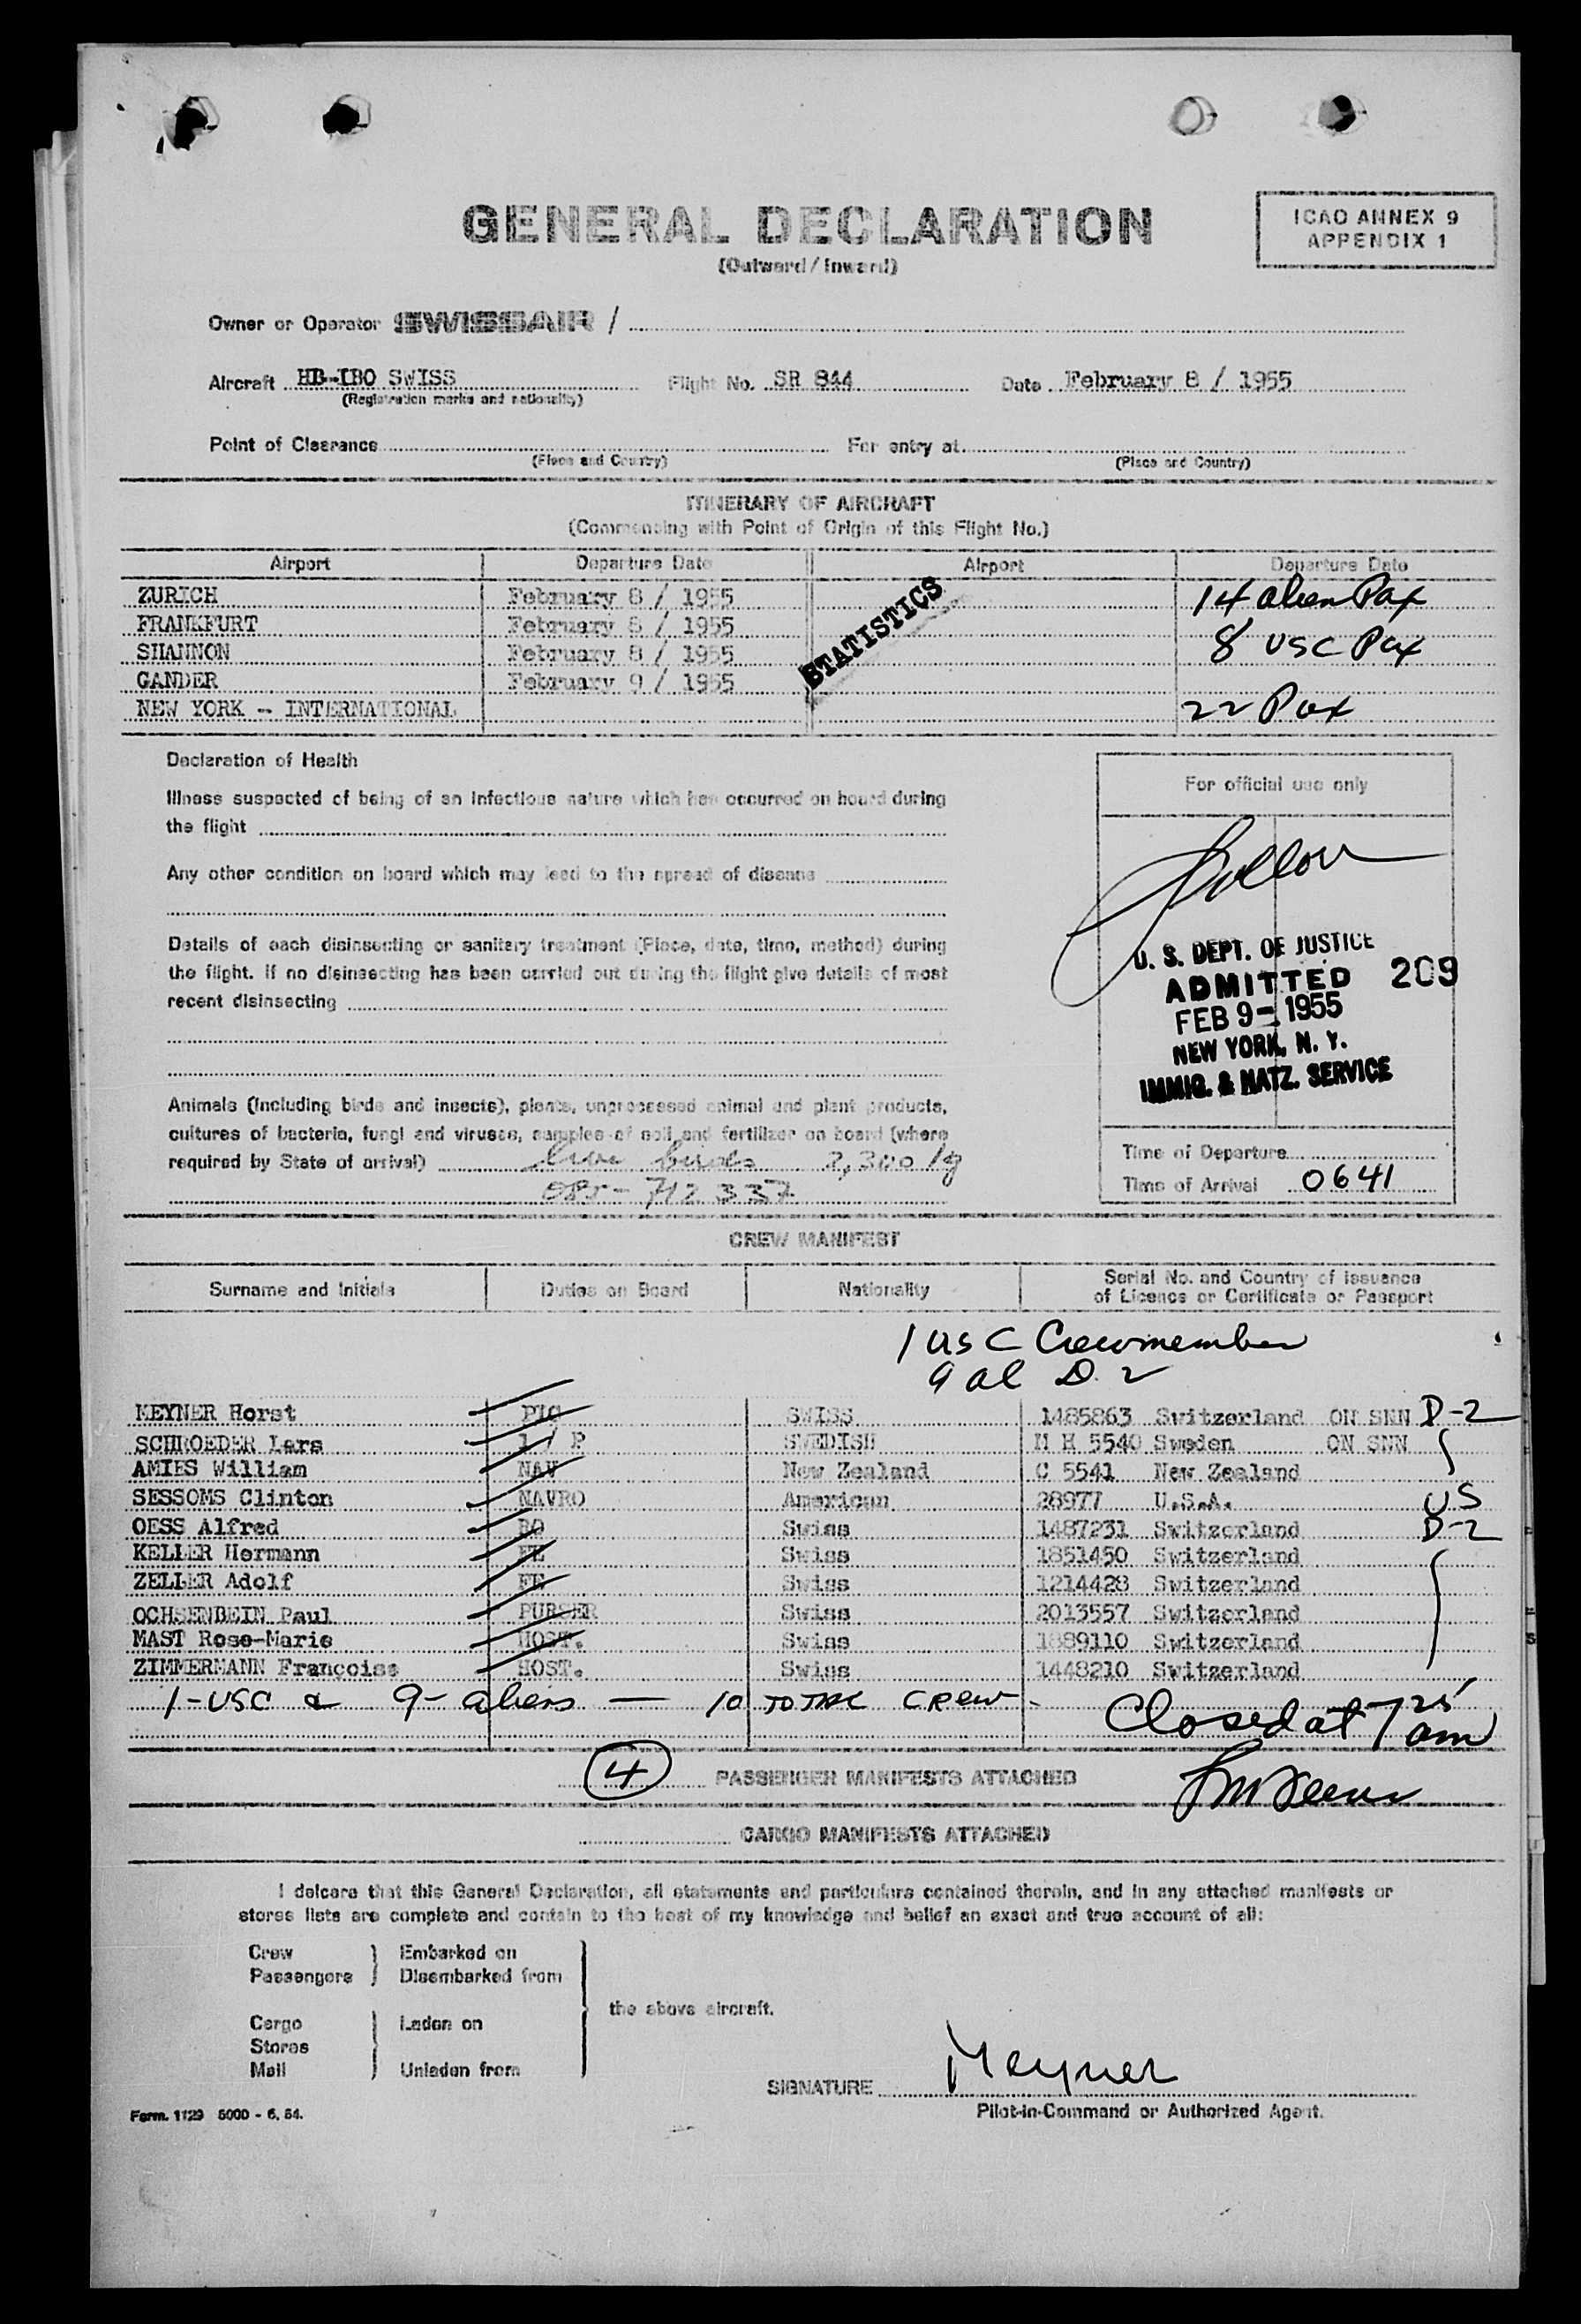 GENERAL DECLARATION
(Outward / Inward)
ICAO ANNEX 9
APPENDIX 1
Owner or Operator SWISSAIR /
Aircraft HB-IBO SWISS Flight No. SR 844 Date February 8 / 1955
(Registration marks and nationality)
Point of Clearance For entry at
(Place and Country) (Place and Country)
ITINERARY OF AIRCRAFT
(Commencing with Point of Origin of this Flight No.)
Airport Departure Date Airport Departure Date
ZURICH February 8 / 1955 14 alien Pax
FRANKFURT February 8 / 1955
SHANNON February 8 / 1955 8 USC Pax
GANDER February 9 / 1955
NEW YORK - INTERNATIONAL 22 Pax
STATISTICS
Declaration of Health
Illness suspected of being of an infectious nature which has occurred on board during
the flight
Any other condition on board which may lead to the spread of disease
Details of each disinsecting or sanitary treatment (Place, date, time, method) during
the flight. If no disinsecting has been carried out during the flight give details of most
recent disinsecting
Animals (including birds and insects), plants, unprocessed animal and plant products,
cultures of bacteria, fungi and viruses, samples of soil and fertilizer on board (where
required by State of arrival) live birds
712 337
For official use only
U. S. DEPT. OF JUSTICE
ADMITTED 209
FEB 9 - 1955
NEW YORK, N. Y.
IMMIG. & NATZ. SERVICE
Time of Departure
Time of Arrival 0641
CREW MANIFEST
Surname and Initials Duties on Board Nationality Serial No. and Country of Issuance
of Licence or Certificate or Passport
1 USC Crewmember
9 al D-2
MEYNER Horst PIC SWISS 1485863 Switzerland ON SNN D-2
SCHROEDER Lars 1 / P SWEDISH M H 5540 Sweden ON SNN
AMIES William NAV New Zealand C 5541 New Zealand
SESSOMS Clinton NAVRO American 28977 U.S.A. US
OESS Alfred RO Swiss 1487231 Switzerland D-2
KELLER Hermann FE Swiss 1851450 Switzerland
ZELLER Adolf FE Swiss 1214428 Switzerland
OCHSENBEIN Paul PURSER Swiss 2013557 Switzerland
MAST Rose-Marie HOST. Swiss 1889110 Switzerland
ZIMMERMANN Françoise HOST. Swiss 1448210 Switzerland
1-USC & 9-aliens — 10 TOTAL CREW-
Closed at 7 25 am
4 PASSENGER MANIFESTS ATTACHED
CARGO MANIFESTS ATTACHED
I delcare that this General Declaration, all statements and particulars contained therein, and in any attached manifests or
stores lists are complete and contain to the best of my knowledge and belief an exact and true account of all:
Crew Embarked on
Passengers Disembarked from
the above aircraft.
Cargo Laden on
Stores
Mail Unladen from
SIGNATURE Meyner
Pilot-in-Command or Authorized Agent.
Form. 1129 5000 - 6. 54.